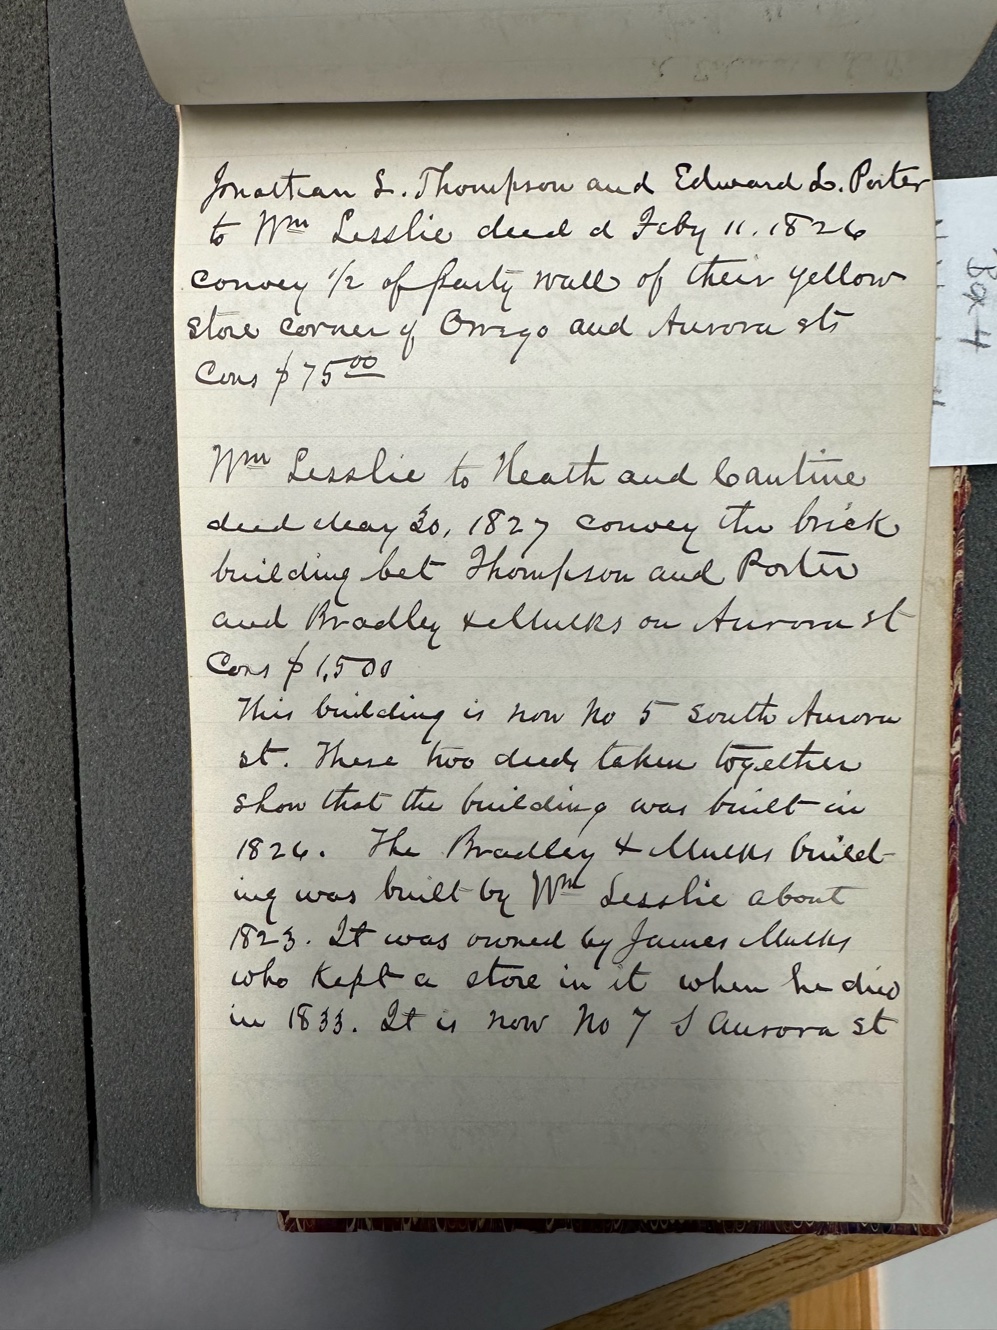 Jonathan L. Thompson and Edward L. Porter
to Wm Lesslie deed d Feby 11. 1826
convey 1/2 of party wall of their yellow
store corner of Owego and Aurora sts
Cons $75.00
Wm Lesslie to Heath and Cantine
deed May 30, 1827 convey the brick
building bet Thompson and Porter
and Bradley & Mulks on Aurora st
Cons $1,500
This building is now No 5 South Aurora
st. These two deeds taken together
show that the building was built in
1826. The Bradley & Mulks build-
ing was built by Wm Lesslie about
1823. It was owned by James Mulks
who kept a store in it when he died
in 1833. It is now No 7 S Aurora st
Box 4